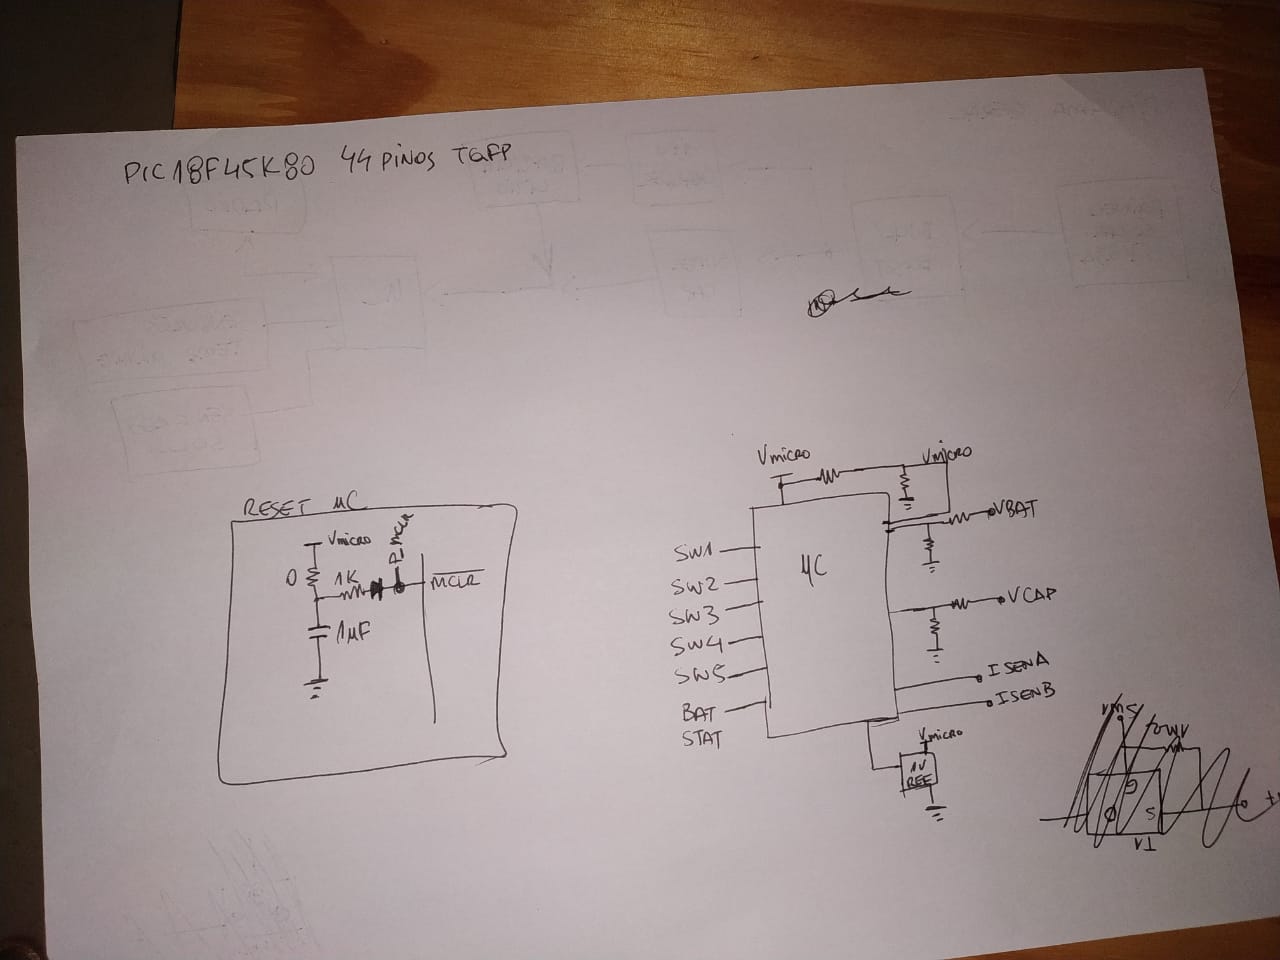 PIC18F45K80 44 PINOS TQFP
RESET µC
Vmicro
0
1K
P_MCLR
MCLR
1µF
Vmicro
Vmicro
VBAT
µC
SW1
SW2
SW3
SW4
SW5
BAT
STAT
VCAP
ISENA
ISENB
Vmicro
1V
REF